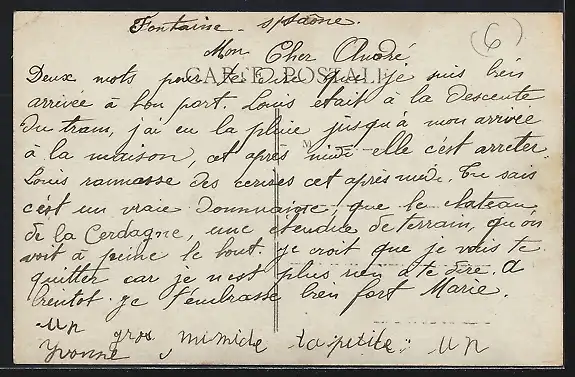 Fontaine - s/Saône.
(6)
Mon Cher André,
CARTE POSTALE
Deux mots pour te dire que je suis bien
arrivée à bon port. Louis était à la descente
du tram, j'ai eu la pluie jusqu'à mon arrivée
à la maison, cet après midi elle c'est arreter.
Louis rammasse des cerises cet après midi. Tu sais
c'ést un vraie dommaige, que le chateau
de la Cerdagne, une étendue de terrain, qu'on
voit à peine le bout. je croit que je vais te
quitter car je n'est plus rien a te dire. a
bientot. je t'embrasse bien fort Marie.
un gros mimide ta petite: un
Yvonne